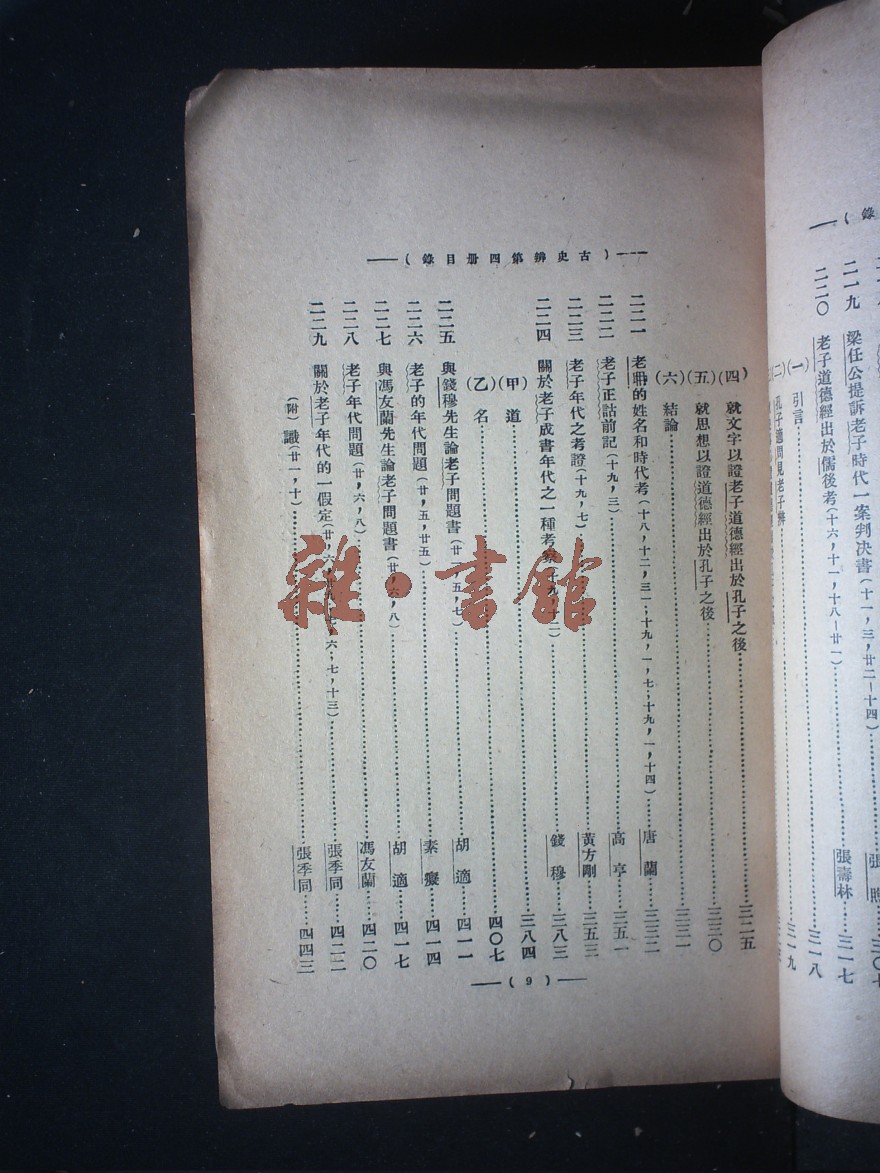 錄）
二一九 梁任公提訴老子時代一案判決書（十一，三，廿二－十四）
張壽林……三一七
二二〇 老子道德經出於儒後考（十六，十一，十八－廿一）
……三一八
（一）引言……三一九
（二）孔子適周見老子辨
（古史辨第四册目錄）
（四）就文字以證老子道德經出於孔子之後……三二五
（五）就思想以證道德經出於孔子之後……三三〇
（六）結論……三三一
二二一 老聃的姓名和時代考（十八，十二，三一；十九，一，七；十九，一，十四）……唐蘭……三三二
二二二 老子正詁前記（十九，三）……高亨……三五一
二二三 老子年代之考證（十九，七）……黃方剛……三五三
二二四 關於老子成書年代之一種考察……錢穆……三八三
（甲）道……三八四
（乙）名……四〇七
二二五 與錢穆先生論老子問題書……胡適……四一一
二二六 老子的年代問題（廿，五，廿五）……素癡……四一四
二二七 與馮友蘭先生論老子問題書（廿，六，八）……胡適……四一七
二二八 老子年代問題（廿，六，八）……馮友蘭……四二〇
二二九 關於老子年代的一假定……張季同……四二二
（附）識（廿一，十）……張季同……四四三
（9）
雜·書館